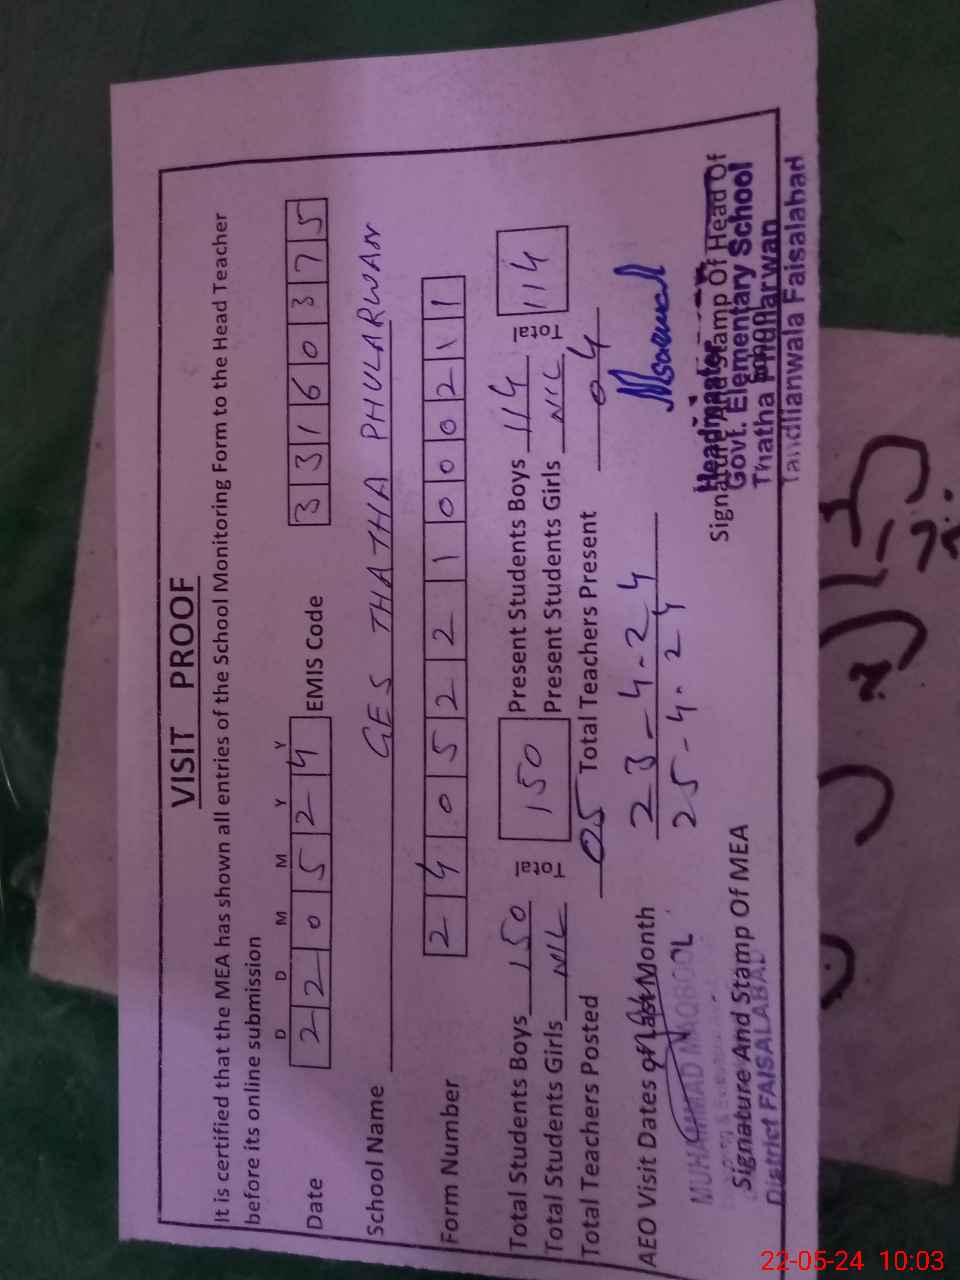 VISIT PROOF
It is certified that the MEA has shown all entries of the School Monitoring Form to the Head Teacher
before its online submission
D D M M Y Y
Date 2 2 0 5 2 4 EMIS Code 3 3 1 6 0 3 7 5
School Name GES THATHA PHULARWAN
Form Number 2 4 0 5 2 2 1 0 0 2 1 1
Total Students Boys 150 Total 150 Present Students Boys 114 Total 114
Total Students Girls NIL Present Students Girls NIL
Total Teachers Posted 05 Total Teachers Present 04
AEO Visit Dates of Last Month 23-4-24
25-4-24
MUHAMMAD MAQBOOL
Signature And Stamp Of MEA
District FAISALABAD
Signature And Stamp Of Head Of
School
Headmaster
Govt. Elementary School
Thatha Phularwan
Tandlianwala Faisalabad
22-05-24 10:03